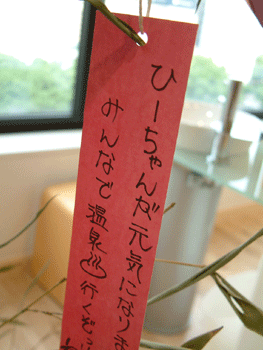 ひーちゃんが元気になりま
みんなで温泉♨行くぞっ